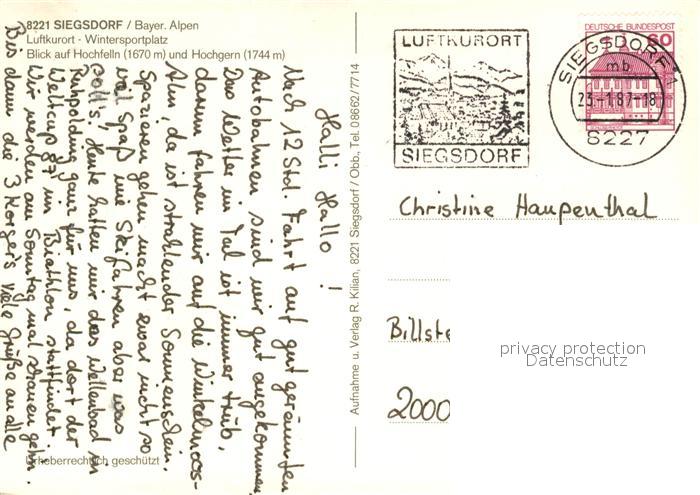 8221 SIEGSDORF / Bayer. Alpen
Luftkurort - Wintersportplatz
Blick auf Hochfelln (1670 m) und Hochgern (1744 m)
Halli Hallo!
Nach 12 Std. Fahrt auf gut geräumten
Autobahnen sind wir gut angekommen
Das Wetter im Tal ist immer trüb,
darum fahren wir auf die Winkelmoos-
Alm! da ist strahlender Sonnenschein.
Spazieren gehen macht zwar nicht so
viel Spaß wie Skifahren aber was
soll's. Heute hatten wir das Wellenbad in
Ruhpolding ganz für uns, da dort der
Weltcup 87 im Biathlon stattfindet.
Wir werden am Sonntag mal schauen gehn.
Bis dann die 3 Korger's Viele Grüße an alle
Urheberrechtlich geschützt
Aufnahme u. Verlag R. Kilian, 8221 Siegsdorf / Obb., Tel. 08662/7714
LUFTKURORT
SIEGSDORF
DEUTSCHE BUNDESPOST
60
SIEGSDORF 1
mb
23.-1.87-18
8227
Christine Haupenthal
Billste
2000
privacy protection
Datenschutz